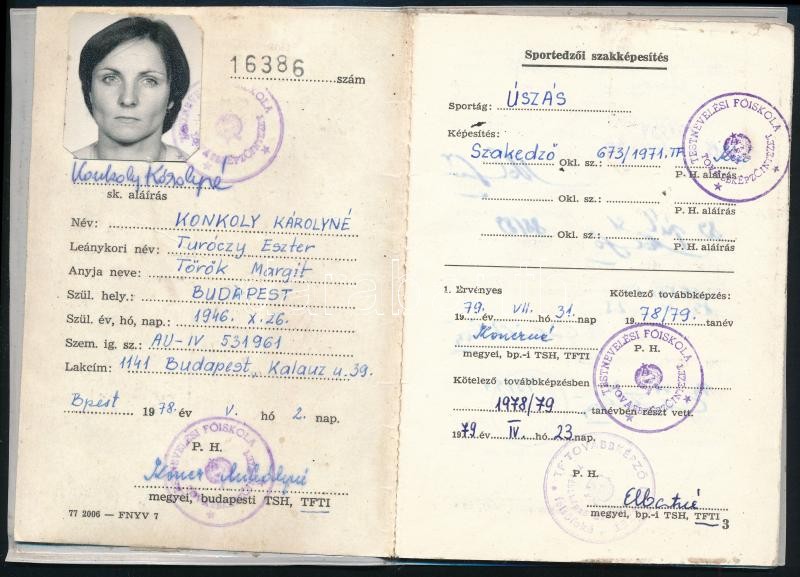 16386 szám
Konkoly Károlyné
sk. aláírás
Név: KONKOLY KÁROLYNÉ
Leánykori név: Turóczy Eszter
Anyja neve: Török Margit
Szül. hely.: BUDAPEST
Szül. év, hó, nap.: 1946. X. 26.
Szem. ig. sz.: AU-IV 531961
Lakcím: 1141 Budapest, Kalauz u. 39.
Bpest 1978. év V. hó 2. nap.
P. H.
megyei, budapesti TSH, TFTI
77 2006 — FNYV 7
TESTNEVELÉSI FŐISKOLA
Sportedzői szakképesítés
Sportág: ÚSZÁS
Képesítés:
Szakedző Okl. sz.: 673/1971. TF
P. H. aláírás
Okl. sz.:
P. H. aláírás
Okl. sz.:
P. H. aláírás
TESTNEVELÉSI FŐISKOLA
TOVÁBBKÉPZŐ INTÉZET
1. Érvényes Kötelező továbbképzés:
79. év VII. hó 31. nap 1978/79. tanév
megyei, bp.-i TSH, TFTI P. H.
TESTNEVELÉSI FŐISKOLA
TOVÁBBKÉPZŐ INTÉZET
Kötelező továbbképzésben
1978/79 tanévben részt vett.
1979 év IV. hó 23. nap.
P. H.
TF TOVÁBBKÉPZŐ
megyei, bp.-i TSH, TFTI
3